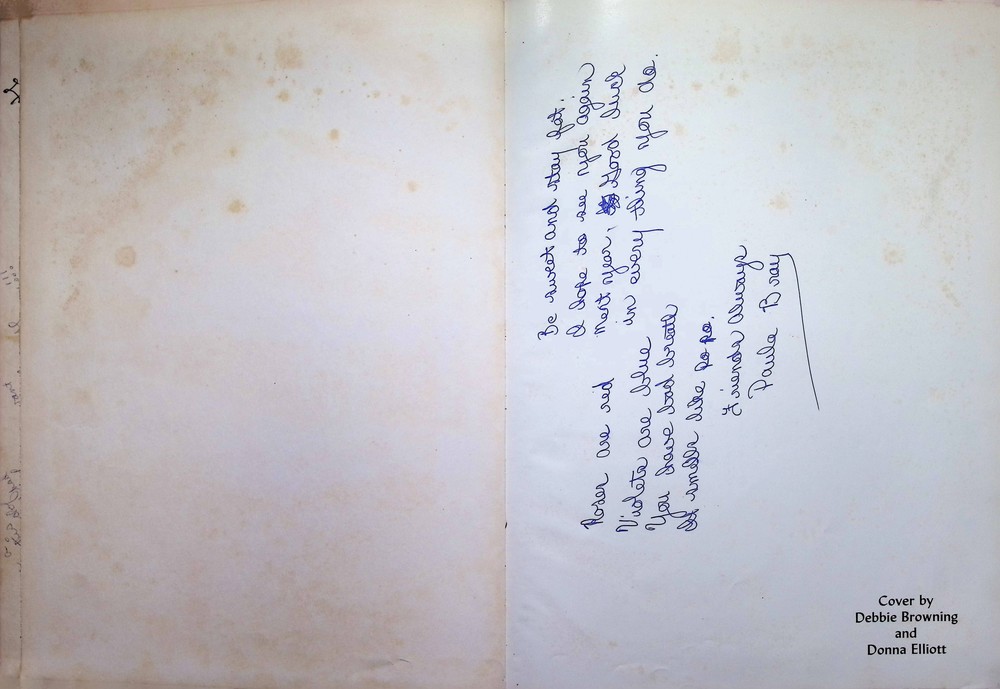 Be sweet and stay fat.
I hope to see you again
next year, Good luck
in every thing you do.
Roses are red
Violets are blue
You have bad breath
It smells like po po.
Friends Always
Paula Bray
Cover by
Debbie Browning
and
Donna Elliott